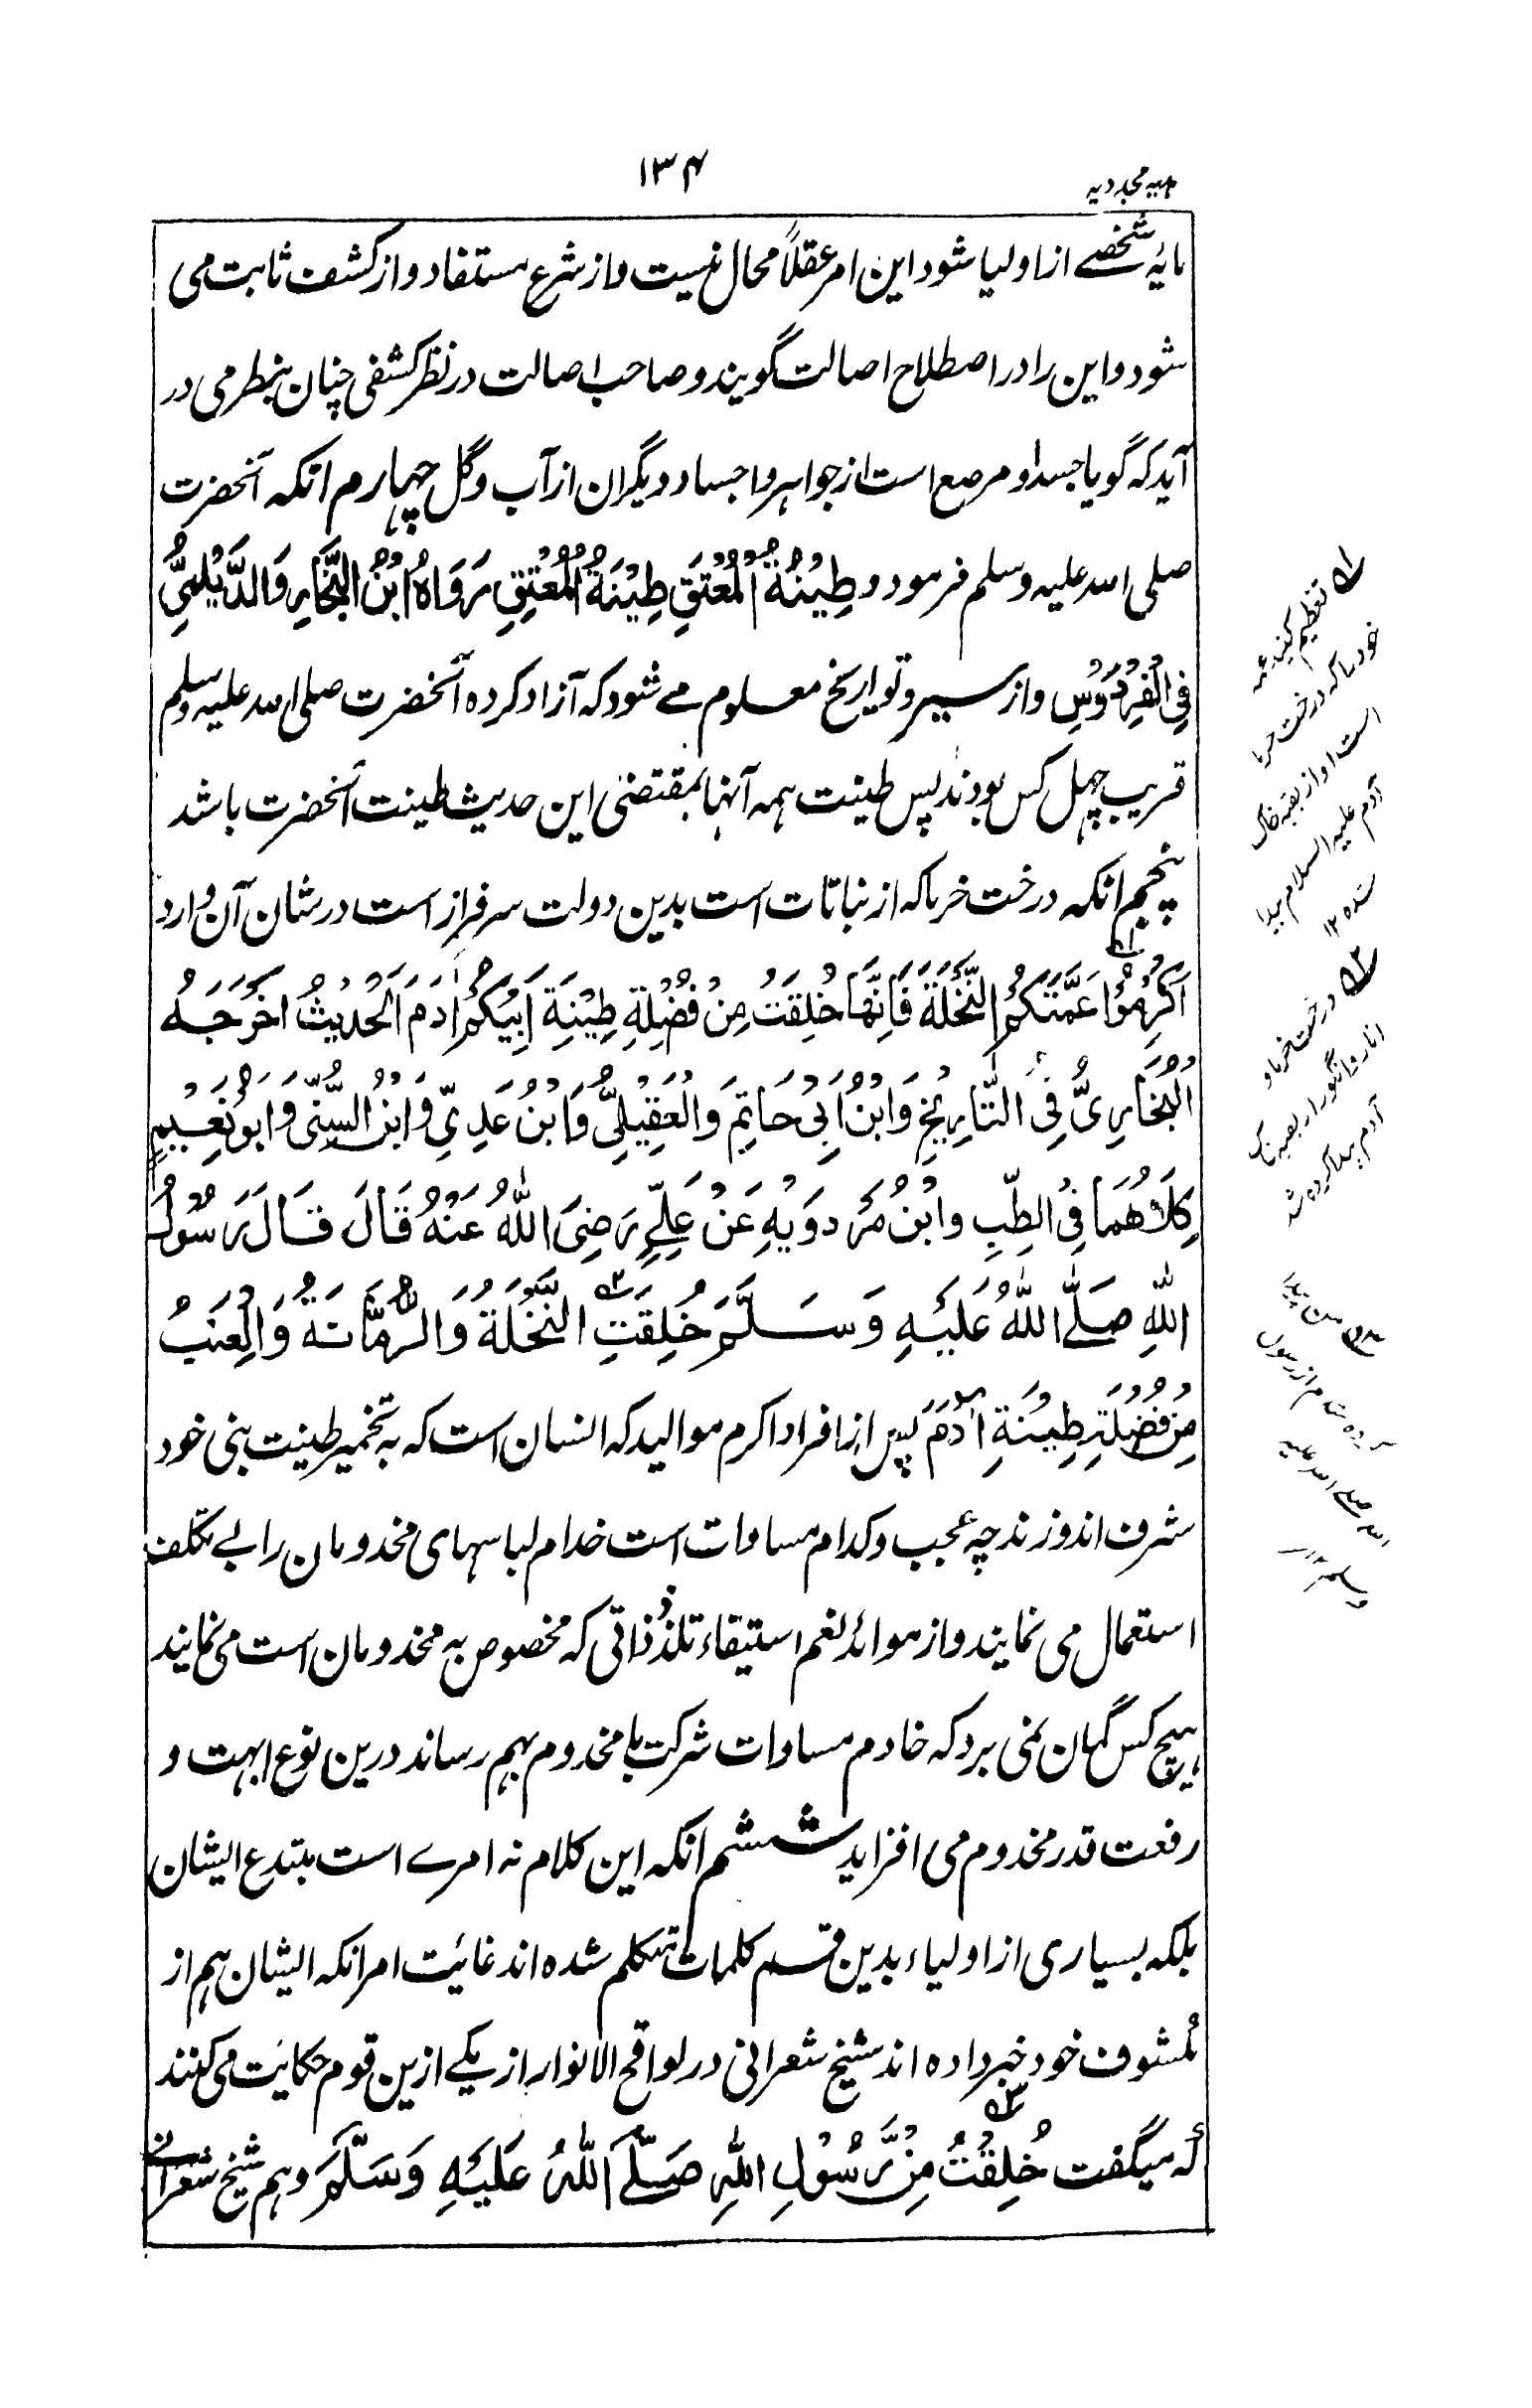 ۱۳۴
مجددیه
مایهٔ شخصے از اولیا شود این امر عقلاً محال نیست و از شرع مستفاد و از کشف ثابت می
شود و این را در اصطلاح اصالت گویند و صاحب اصالت در نظر کشفی چنان بنظر می در
آید که گویا جسد او مرصع است از جواهر و اجساد دیگران از آب و گل چهارم انکه آنحضرت
صلی الله علیه وسلم فرمود و طِیْنَةُ الْمُعْتَقِ طِیْنَةُ الْمُعْتِقِ رَوَاهُ ابْنُ النَّجَّارِ وَالدَّیْلَمِیُّ
فِی الْفِرْدَوْسِ و از سیر و تواریخ معلوم مے شود که آزاد کرده آنحضرت صلی الله علیه وسلم
قریب چهل کس بودند پس طینت همه آنها بمقتضی این حدیث طینت آنحضرت باشد
پنجم انکه درخت خرما که از نباتات است بدین دولت سرفراز است در شان آن وارد
اَکْرِمُوْا عَمَّتَکُمُ النَّخْلَةَ فَاِنَّهَا خُلِقَتْ مِنْ فُضْلَةِ طِیْنَةِ اَبِیْکُمْ اٰدَمَ الْحَدِیْثُ اَخْرَجَهُ
الْبُخَارِیُّ فِی التَّارِیْخِ وَابْنُ اَبِیْ حَاتِمٍ وَالْعُقَیْلِیُّ وَابْنُ عَدِیٍّ وَابْنُ السُّنِّیِّ وَاَبُوْ نُعَیْمٍ
کِلَاهُمَا فِی الطِّبِّ وَابْنُ مَرْدَوَیْهِ عَنْ عَلِیٍّ رَضِیَ اللهُ عَنْهُ قَالَ قَالَ رَسُوْلُ
اللهِ صَلَّی اللهُ عَلَیْهِ وَسَلَّمَ خُلِقَتِ النَّخْلَةُ وَالرُّمَّانَةُ وَالْعِنَبُ
مِنْ فُضْلَةِ طِیْنَةِ اٰدَمَ پس از افراد اکرم موالید که انسان است که به تخمیر طینت بنی خود
شرف اندوزند چه عجب و کدام مساوات است خدام لباسهای مخدومان را بے تکلف
استعمال می نمایند و از موائد نعم استیفاء تلذذاتی که مخصوص به مخدومان است می نمایند
هیچ کس گمان نمی برد که خادم مساوات شرکت با مخدوم بهم رساند درین نوع ابهت و
رفعت قدر مخدوم می افزاید ششم انکه این کلام نه امرے است مبتدع ایشان
بلکه بسیاری از اولیاء بدین قسم کلمات متکلم شده اند غائیت امر انکه ایشان هم از
کشوف خود خبر داده اند شیخ شعرانی در لواقح الانوار از یکے ازین قوم حکایت می کنند
که میگفت خُلِقْتُ مِنْ رَّسُوْلِ اللهِ صَلَّی اللهُ عَلَیْهِ وَسَلَّمَ وهم شیخ شعرانی
ا؎ تعظیم کنید عمه
خود را که درخت خرما
است او از بقیه خاک
آدم علیه السلام پیدا
شده ۱۲
۲؎ درخت خرما و
انار و انگور از بقیه خاک
آدم پیدا کرده شد
۳؎ من پیدا
کرده شدم از رسول
الله صلی الله علیه
وسلم ۱۲